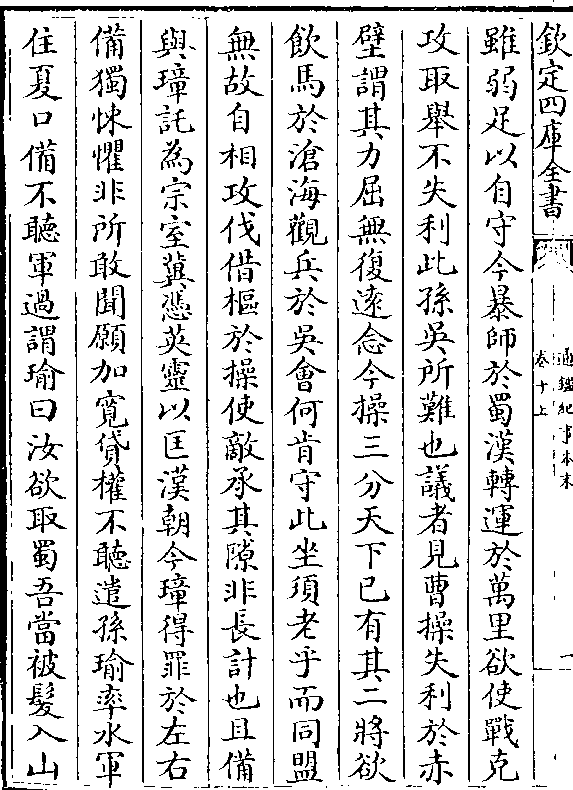 欽定四庫全書
通鑑紀事本末
卷十上
一
雖弱足以自守今暴師於蜀漢轉運於萬里欲使戰克
攻取舉不失利此孫吳所難也議者見曹操失利於赤
壁謂其力屈無復遠念今操三分天下已有其二將欲
飲馬於滄海觀兵於吳會何肯守此坐須老乎而同盟
無故自相攻伐借樞於操使敵承其隙非長計也且備
與璋託為宗室冀憑英靈以匡漢朝今璋得罪於左右
備獨悚懼非所敢聞願加寬貸權不聽遣孫瑜率水軍
住夏口備不聽軍過謂瑜曰汝欲取蜀吾當被髮入山